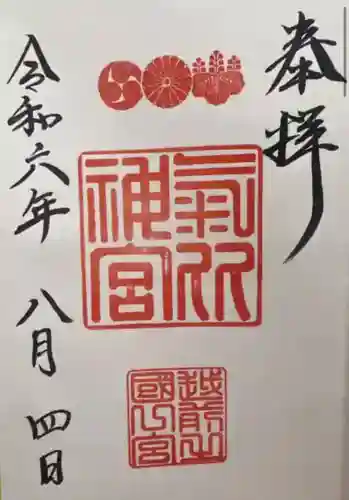 奉拝
氣比
神宮
越前一
國之宮
令和六年 八月 四日